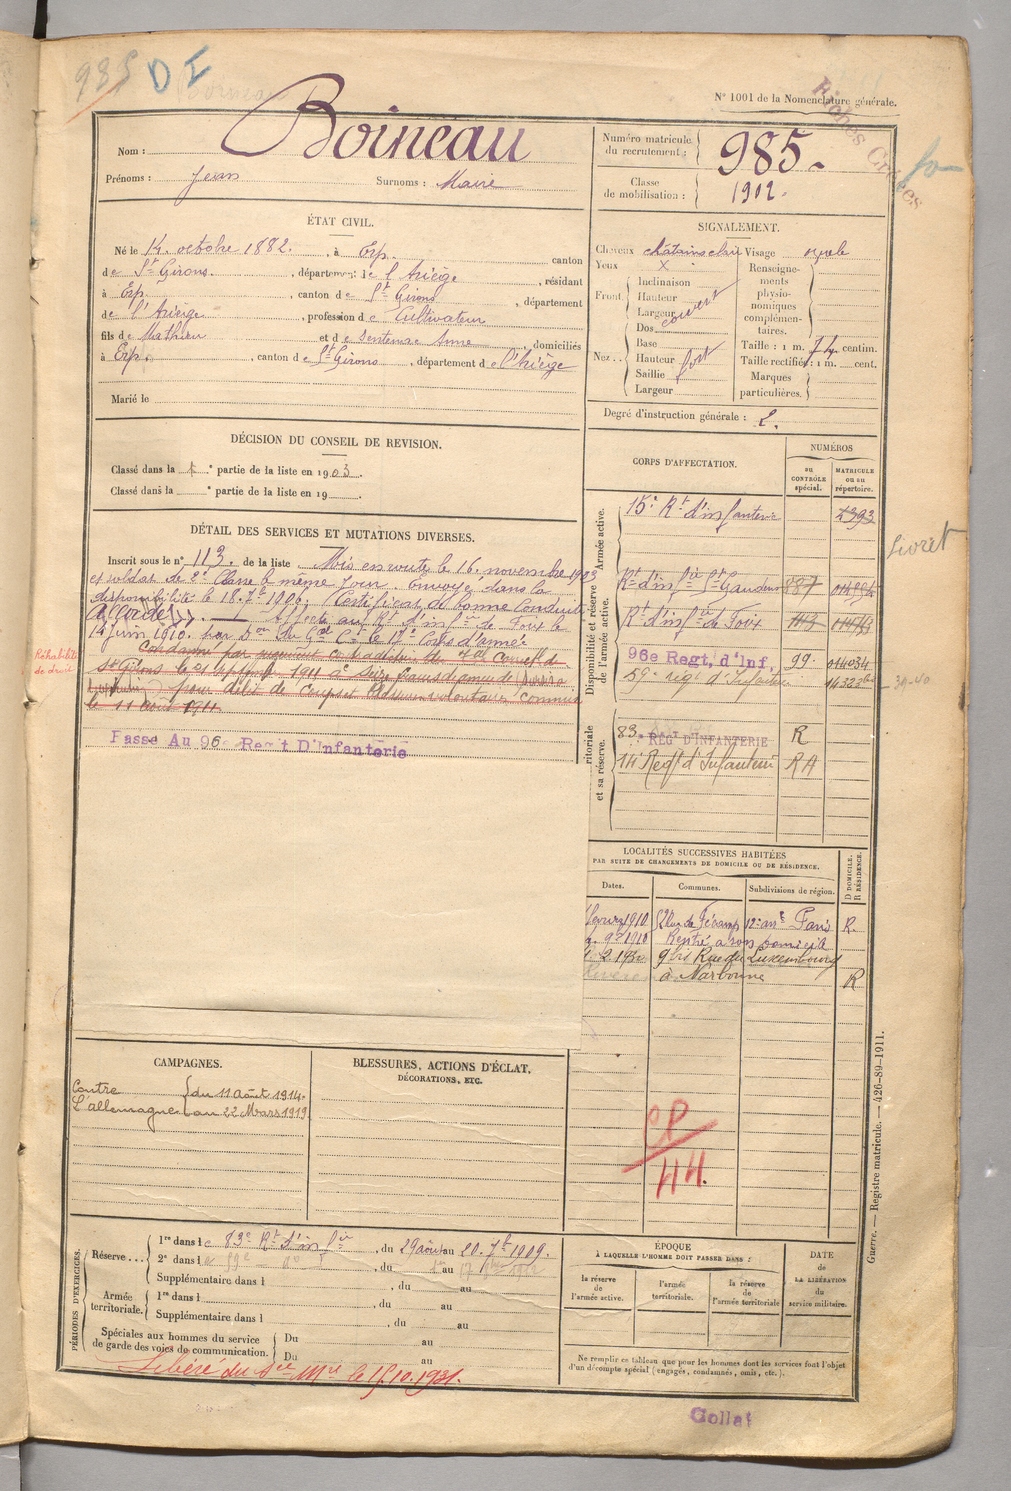 985 D I
Nº 1001 de la Nomenclature générale.
Fiches Croisées
Nom : Boineau
Prénoms : Jean Surnoms : Marie
Numéro matricule du recrutement : 985
Classe de mobilisation : 1902.
ÉTAT CIVIL.
Né le 14 octobre 1882. , à Erp. canton
de St Girons. , département de l'Ariège , résidant
à Erp. , canton de St Girons , département
de l'Ariège , profession de Cultivateur
fils de Mathieu et de Sentenac Anne , domiciliés
à Erp. , canton de St Girons , département de l'Ariège
Marié le
SIGNALEMENT.
Cheveux châtains clair Visage ovale
Yeux x
Front Inclinaison
Hauteur
Largeur
couvert
Nez Dos
Base
Hauteur
Saillie
Largeur
fort
Renseignements physionomiques complémentaires.
Taille : 1 m. 74 centim.
Taille rectifiée : 1 m. cent.
Marques particulières.
Degré d'instruction générale : 2.
DÉCISION DU CONSEIL DE REVISION.
Classé dans la 1e partie de la liste en 1903.
Classé dans la e partie de la liste en 19
DÉTAIL DES SERVICES ET MUTATIONS DIVERSES.
Inscrit sous le nº 113. de la liste Mis en route le 16. novembre 1903
et soldat de 2e Classe le même jour. Envoyé dans la
disponibilité le 18. 7bre 1906. Certificat de bonne Conduite
"Accordé". Affecté au Rt d'infie de Foix le
14 juin 1910. par Don du Gal Ct le 17e Corps d'armée
Condamné par jugement contradictoire du
St Girons le 1911 à seize francs d'amende
pour délit de coups et blessures volontaires commis
le 11 août 1911.
Réhabilité de droit
Passe Au 96e Regt D'Infanterie
CORPS D'AFFECTATION.
NUMÉROS
au contrôle spécial.
matricule ou au répertoire.
Armée active.
15e Rt d'infanterie 2393
Disponibilité et réserve de l'armée active.
Rt d'infie St Gaudens 887
Rt d'infie de Foix
96e Regt, d'Inf. 99. 014034
59e regt d'Infanterie 14323bis
ritoriale et sa réserve.
83e REGt D'INFANTERIE R
14e Regt d'Infanterie RA
Livret
39-40
LOCALITÉS SUCCESSIVES HABITÉES
PAR SUITE DE CHANGEMENTS DE DOMICILE OU DE RÉSIDENCE.
Dates. Communes. Subdivisions de région. D DOMICILE. R RÉSIDENCE.
1910 Rue de Fécamp 12e arrt Paris R.
1910 Rentré à son domicile
2.1930 9 bis Rue du Luxembourg
à Narbonne R
CAMPAGNES.
Contre L'allemagne du 11 Août 1914. au 22 Mars 1919
BLESSURES, ACTIONS D'ÉCLAT,
DÉCORATIONS, ETC.
CP
44.
PÉRIODES D'EXERCICES.
Réserve 1re dans le 83e Rt d'infie , du 29 août au 20. 7bre 1909.
2e dans le 59e , du 1er au 17
Supplémentaire dans l , du au
Armée territoriale. 1re dans l , du au
Supplémentaire dans l , du au
Spéciales aux hommes du service de garde des voies de communication. Du au
Du au
Libéré du Sce Mre le 15.10.1931.
ÉPOQUE
À LAQUELLE L'HOMME DOIT PASSER DANS :
la réserve de l'armée active.
l'armée territoriale.
la réserve de l'armée territoriale
DATE de LA LIBÉRATION du service militaire.
Ne remplir ce tableau que pour les hommes dont les services font l'objet
d'un décompte spécial (engagés, condamnés, omis, etc.).
Guerre. — Registre matricule. — 426-89-1911.
Collat